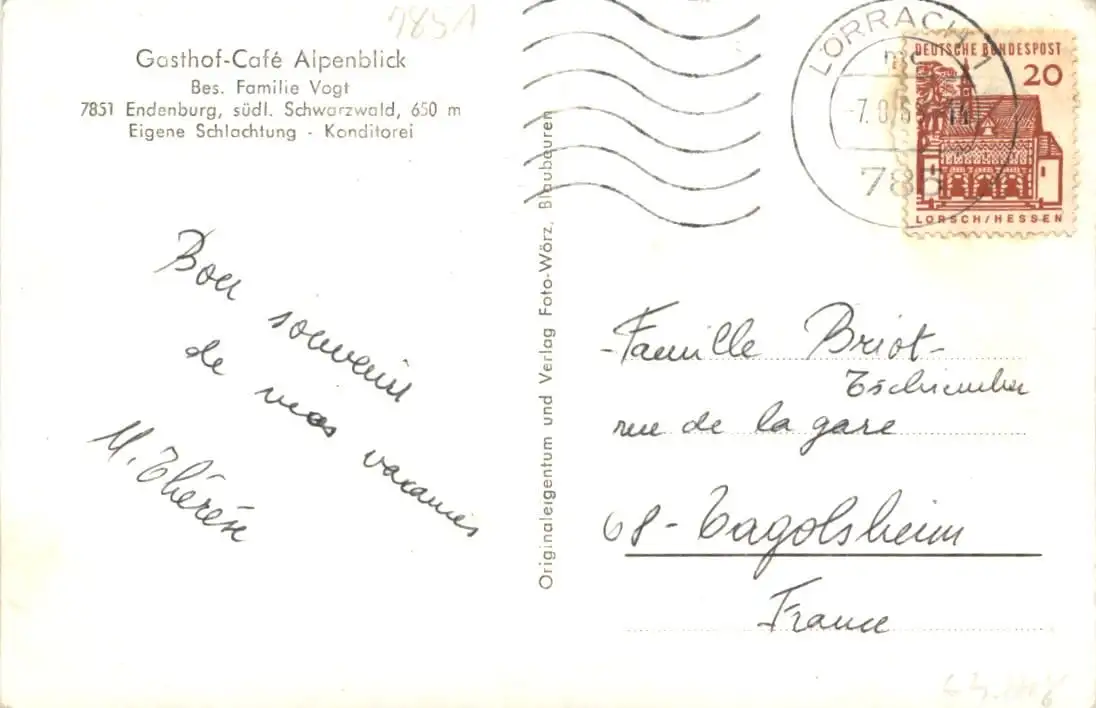 7851
Gasthof-Café Alpenblick
Bes. Familie Vogt
7851 Endenburg, südl. Schwarzwald, 650 m
Eigene Schlachtung - Konditorei
Bon souvenir
de mes vacances
M. Thérèse
Originaleigentum und Verlag Foto-Wörz, Blaubeuren
LÖRRACH 1
DEUTSCHE BUNDESPOST
20
LORSCH/HESSEN
-Famille Briot-
Tschiember
rue de la gare
68-Tagolsheim
France